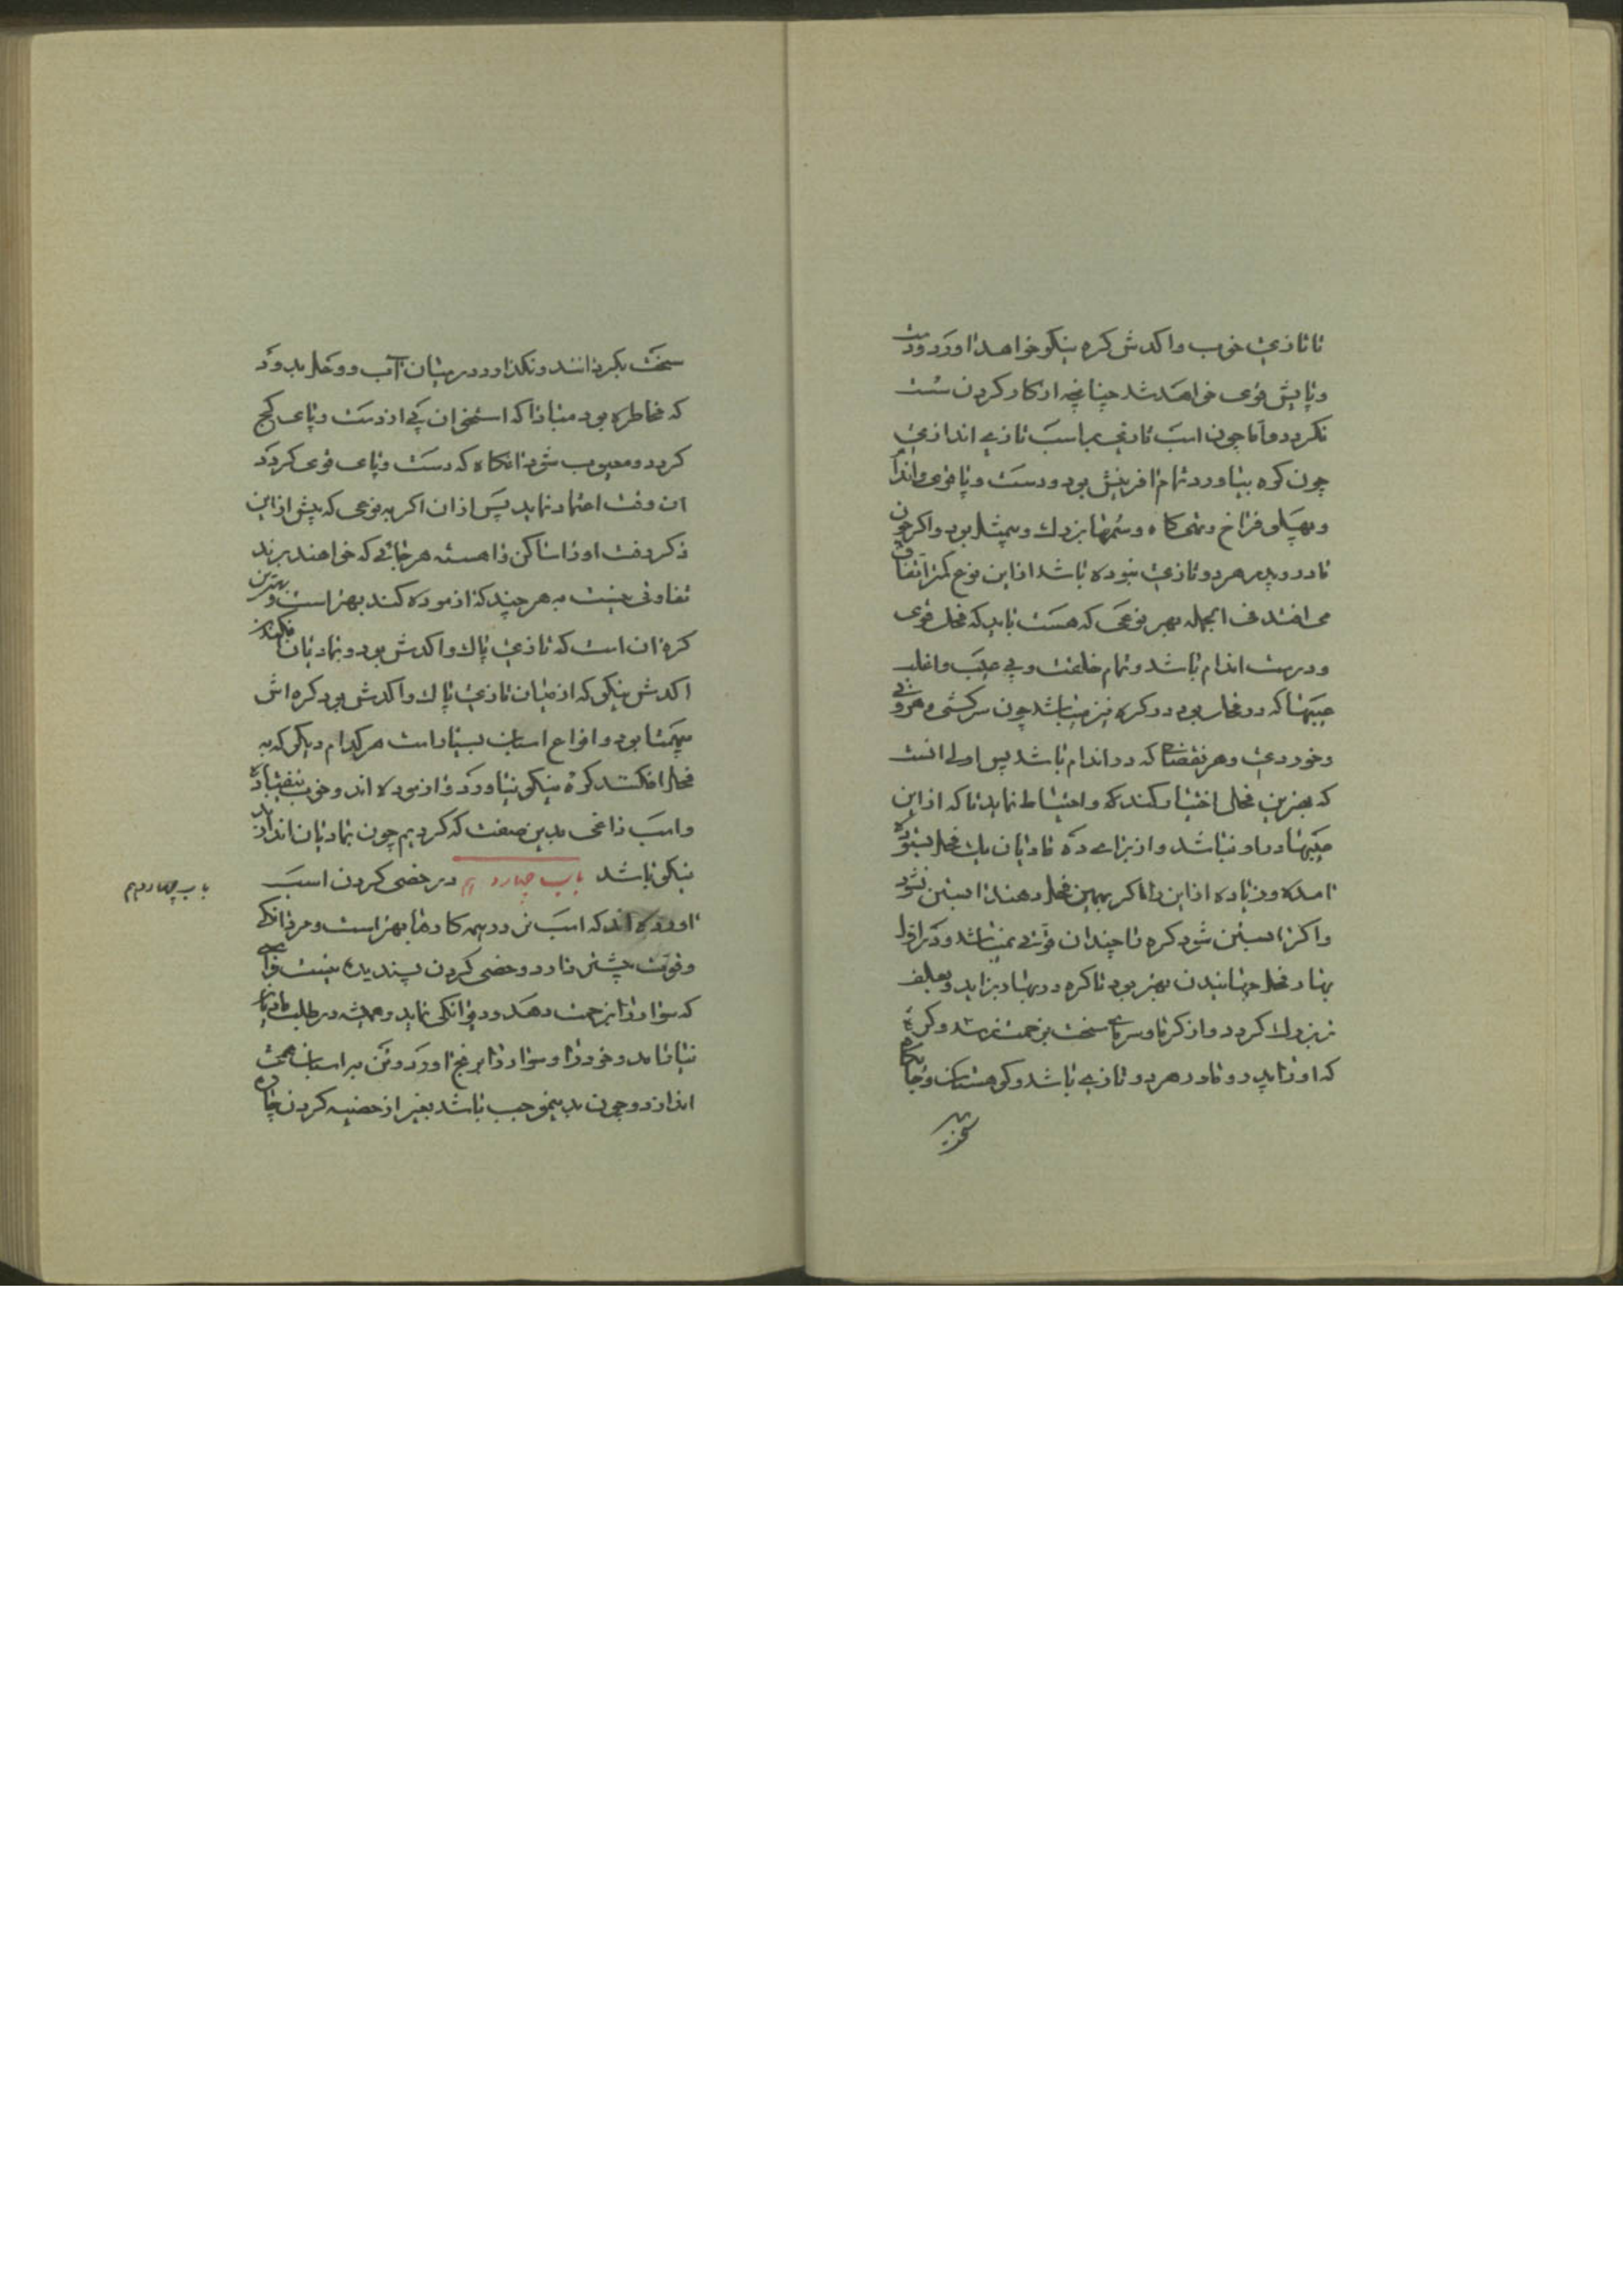 تا تازی خوب واکدش کره نیکو خواهد اورد ودست
وپایش قوی خواهد شد چنانچه از کار کردن سست
نکردد واما چون اسب تازی بر اسب تازی اندازی
چون کره بیاورد تمام افرینش بود ودست وپا قوی واندام
وپهلو فراخ وتهی کاه وسمها بزرك وبیمثل بود واکر چون
مادر وپدر هر دو تازی نبوده باشد ازاین نوع کمتر اتفاق
می افتد فی الجمله بهر نوعی که هست باید که فحل قوی
ودرست اندام باشد وتمام خلقت وبی عیب واغلب
عیبها که در فحل بود در کره نیز میباشد چون سرکشی وحرونی
وخوردی وهر نقصان که در اندام باشد پس اولی انست
که بهترین فحلی اختیار کنند که واحتیاط نماید تا که ازاین
عیبها در او نباشد واز برای ده مادیان یك فحل ستوده
امده وزیاده ازاین را اکر بهمین فحل دهند ابستن نشود
واکر ابستن شود کره را چندان قوتی نمیباشد ودر اول
بهار فحل جهانیدن بهتر بود تا کره در بهار بزاید وبعلف
تر بزرك کردد واز کرما وسرمای سخت بزحمت نرسد وکره
که اورا پدر ومادر هر دو تازی باشد وکوهستان وجایکاه
سخت
سخت بکردانند ونکذارد در میان آب ووحل بدود
که مخاطره بود مبادا که استخوان پی از دست وپای کج
کردد ومعیوب شود انکاه که دست وپای قوی کردد
ان وقت اعتماد نماید پس ازان اکر به نوعی که پیش ازاین
ذکر رفت اورا ساکن واهسته هر جائی که خواهند برند
تفاوتی نیست به هر چند که ازموده کند بهتر است وبهترین
کره ان است که تازی پاك واکدش بود وبمادیان فکنند
اکدش نیکو که از میان تازی پاك واکدش بود کره اش
بیهمتا بود وانواع اسبان بسیار است هر کدام دیکر که به
فحل افکنند کره نیکو نیاورد وازموده اند وخوب نیفتاده
واسب زاغی بدین صفت که کردیم چون بمادیان اندازند
نیکو باشد باب چهاردهم در خصی کردن اسب
اورده اند که اسب نر در همه کارها بهتر است ومردانکی
وقوت بیشتر دارد وخصی کردن پسندیده نیست واسبی
که سوار را زحمت دهد ودیوانکی نماید وهمیشه در طلب مادیان
بیارامد وخود را وسوار را برنج اورد وتن بر اسبان همی
اندازد وچون بدینموجب باشد بغیر از خصیه کردن چاره
باب چهاردهم